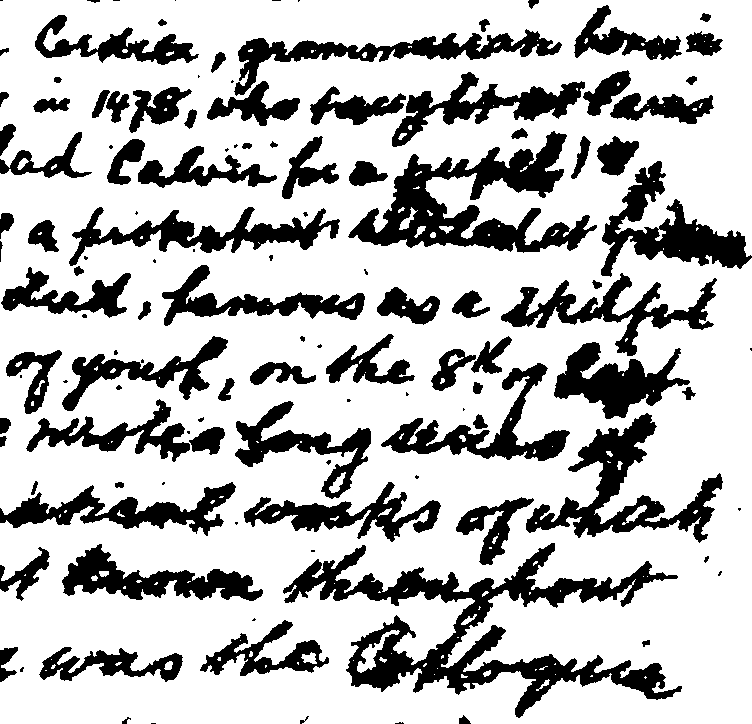 Cordier, grammarian born in
in 1478, who taught at Paris
had Calvin for a pupil)
a protestant settled at
died, famous as a skilful
of youth, on the 8th of Sept.
wrote a long series of
works of which
known throughout
was the Colloquia